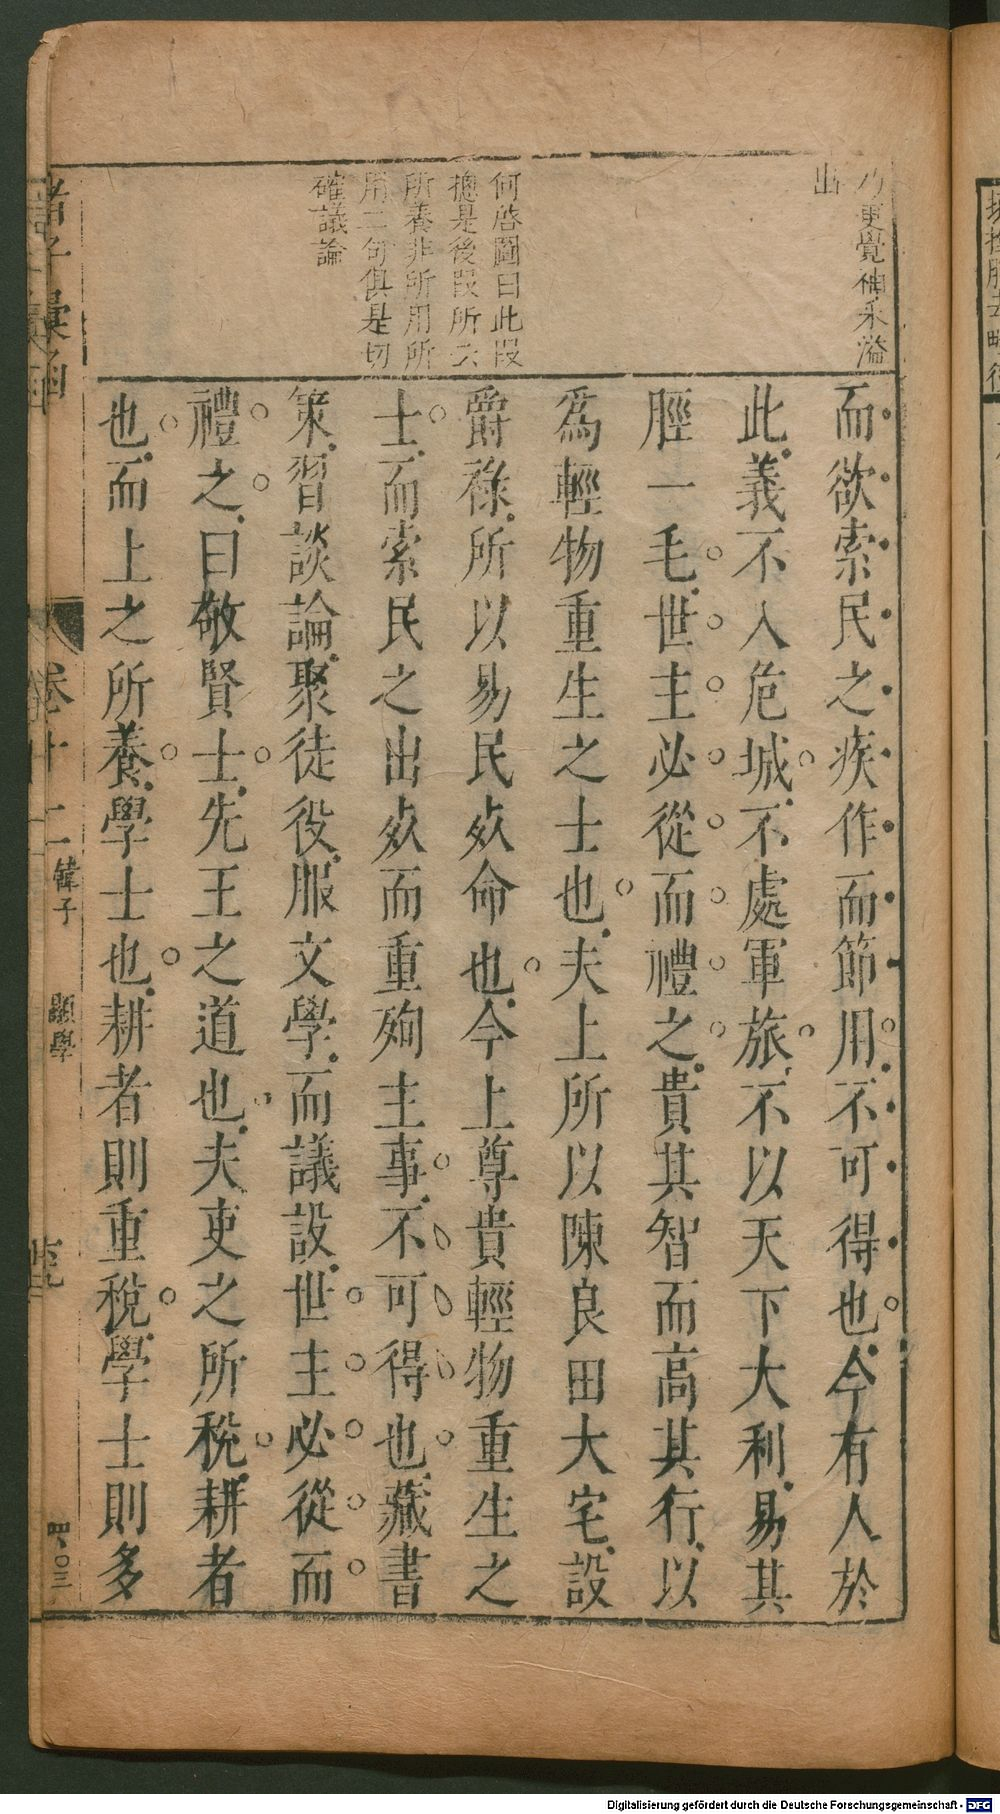 乃更覺神采溢
出
何啓圖曰此段
揔是後段所云
所養非所用所
用二句俱是切
確議論
而欲索民之疾作而節用不可得也今有人於
此義不入危城不處軍旅不以天下大利易其
脛一毛世主必從而禮之貴其智而高其行以
爲輕物重生之士也夫上所以陳良田大宅設
爵祿所以易民𣦸命也今上尊貴輕物重生之
士而索民之出𣦸而重殉主事不可得也藏書
策習談論聚徒役服文學而議設世主必從而
禮之曰敬賢士先王之道也夫吏之所稅耕者
也而上之所養學士也耕者則重稅學士則多
諸子彙函
卷十二
韓子
顯學
四〇三
Digitalisierung gefördert durch die Deutsche Forschungsgemeinschaft - DFG